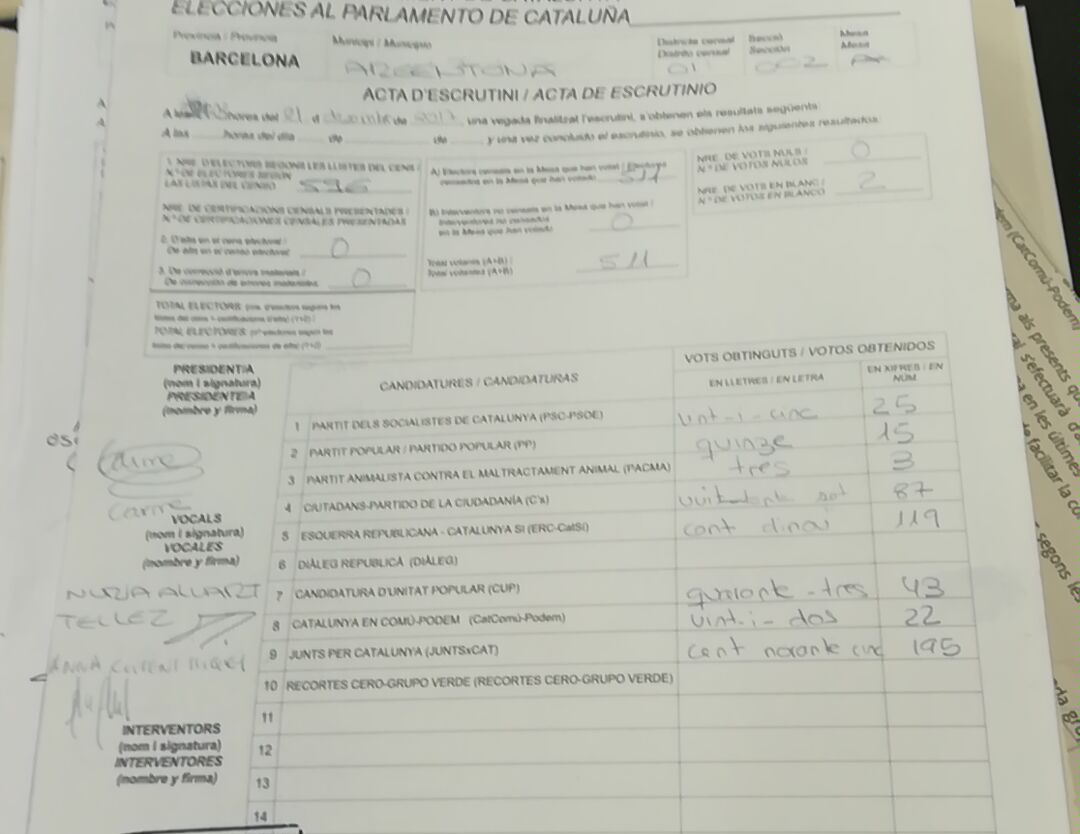 ELECCIONES AL PARLAMENTO DE CATALUÑA
Província / Provincia
BARCELONA
Municipi / Municipio
ARGENTONA
Districte censal
Distrito censal
01
Secció
Sección
002
Mesa
Mesa
A
ACTA D'ESCRUTINI / ACTA DE ESCRUTINIO
A les hores del 21 d desembre de 2017, una vegada finalitzat l'escrutini, s'obtenen els resultats següents:
A las horas del día de de y una vez concluido el escrutinio, se obtienen los siguientes resultados:
1. NRE. D'ELECTORS SEGONS LES LLISTES DEL CENS /
N.º DE ELECTORES SEGÚN
LAS LISTAS DEL CENSO 596
NRE. DE CERTIFICACIONS CENSALS PRESENTADES /
N.º DE CERTIFICACIONES CENSALES PRESENTADAS
2. D'alta en el cens electoral /
De alta en el censo electoral 0
3. De correcció d'errors materials /
De corrección de errores materiales 0
TOTAL ELECTORS
TOTAL ELECTORES
A) Electors censats en la Mesa que han votat / Electores
censados en la Mesa que han votado 511
B) Interventors no censats en la Mesa que han votat /
Interventores no censados
en la Mesa que han votado 0
Total votants (A+B) /
Total votantes (A+B) 511
NRE. DE VOTS NULS /
N.º DE VOTOS NULOS 0
NRE. DE VOTS EN BLANC /
N.º DE VOTOS EN BLANCO 2
PRESIDENT/A
(nom i signatura)
PRESIDENTE/A
(nombre y firma)
Carme
Carme
VOCALS
(nom i signatura)
VOCALES
(nombre y firma)
NURIA
TELLEZ
INTERVENTORS
(nom i signatura)
INTERVENTORES
(nombre y firma)
CANDIDATURES / CANDIDATURAS
VOTS OBTINGUTS / VOTOS OBTENIDOS
EN LLETRES / EN LETRA
EN XIFRES / EN NÚM.
1 PARTIT DELS SOCIALISTES DE CATALUNYA (PSC-PSOE) vint-i-cinc 25
2 PARTIT POPULAR / PARTIDO POPULAR (PP) quinze 15
3 PARTIT ANIMALISTA CONTRA EL MALTRACTAMENT ANIMAL (PACMA) tres 3
4 CIUTADANS-PARTIDO DE LA CIUDADANÍA (C's) vuitanta set 87
5 ESQUERRA REPUBLICANA - CATALUNYA SÍ (ERC-CatSí) cent dinou 119
6 DIÀLEG REPUBLICÀ (DIÀLEG)
7 CANDIDATURA D'UNITAT POPULAR (CUP) quaranta-tres 43
8 CATALUNYA EN COMÚ-PODEM (CatComú-Podem) vint-i-dos 22
9 JUNTS PER CATALUNYA (JUNTSxCAT) cent noranta cinc 195
10 RECORTES CERO-GRUPO VERDE (RECORTES CERO-GRUPO VERDE)
11
12
13
14
(CatComú-Podem)
als presents
s'efectuarà
en les últimes
facilitar la
segons les